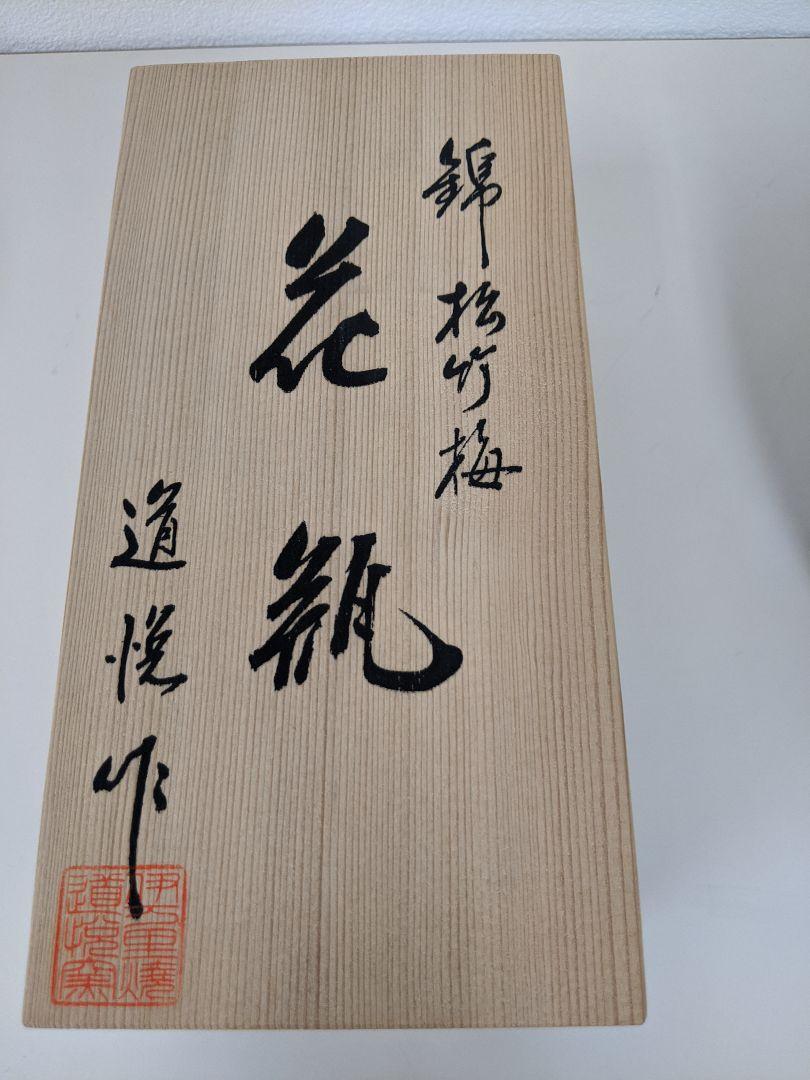 錦松竹梅
花瓶
道悦作
伊万里焼
道悦窯